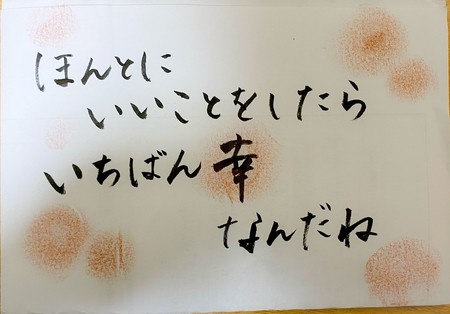 ほんとに
いいことをしたら
いちばん幸
なんだね